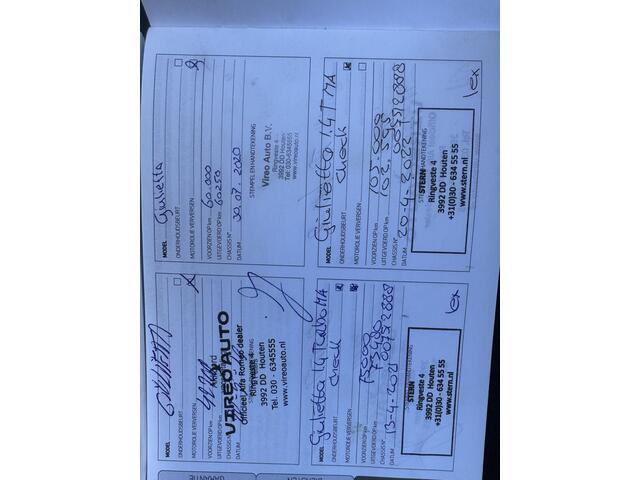 MODEL Giulietta
ONDERHOUDSBEURT
MOTOROLIE VERVERSEN
VOORZIEN OP km
UITGEVOERD OP km
CHASSIS N°
DATUM
VIREO AUTO
Officieel Alfa Romeo dealer
Ringveste 4
3992 DD Houten
Tel. 030 - 6345555
www.vireoauto.nl
MODEL Giulietta
ONDERHOUDSBEURT
MOTOROLIE VERVERSEN
VOORZIEN OP km 60.000
UITGEVOERD OP km 60250
CHASSIS N°
DATUM 30.07.2020
STEMPEL EN HANDTEKENING
Vireo Auto B.V.
Ringveste 4
3992 DD Houten
Tel: 030-6345555
www.vireoauto.nl
MODEL Giulietta 1.4 Turbo MA
ONDERHOUDSBEURT check
MOTOROLIE VERVERSEN
VOORZIEN OP km 75000
UITGEVOERD OP km
CHASSIS N°
DATUM 13-4-2021
STERN
Ringveste 4
3992 DD Houten
+31(0)30 - 634 55 55
www.stern.nl
lex
MODEL Giulietta 1.4 T MA
ONDERHOUDSBEURT check
MOTOROLIE VERVERSEN
VOORZIEN OP km 105.000
UITGEVOERD OP km 102.545
CHASSIS N°
DATUM 20-4-2022
STERN
Ringveste 4
3992 DD Houten
+31(0)30 - 634 55 55
www.stern.nl
lex
GARANTIE
DIENSTEN